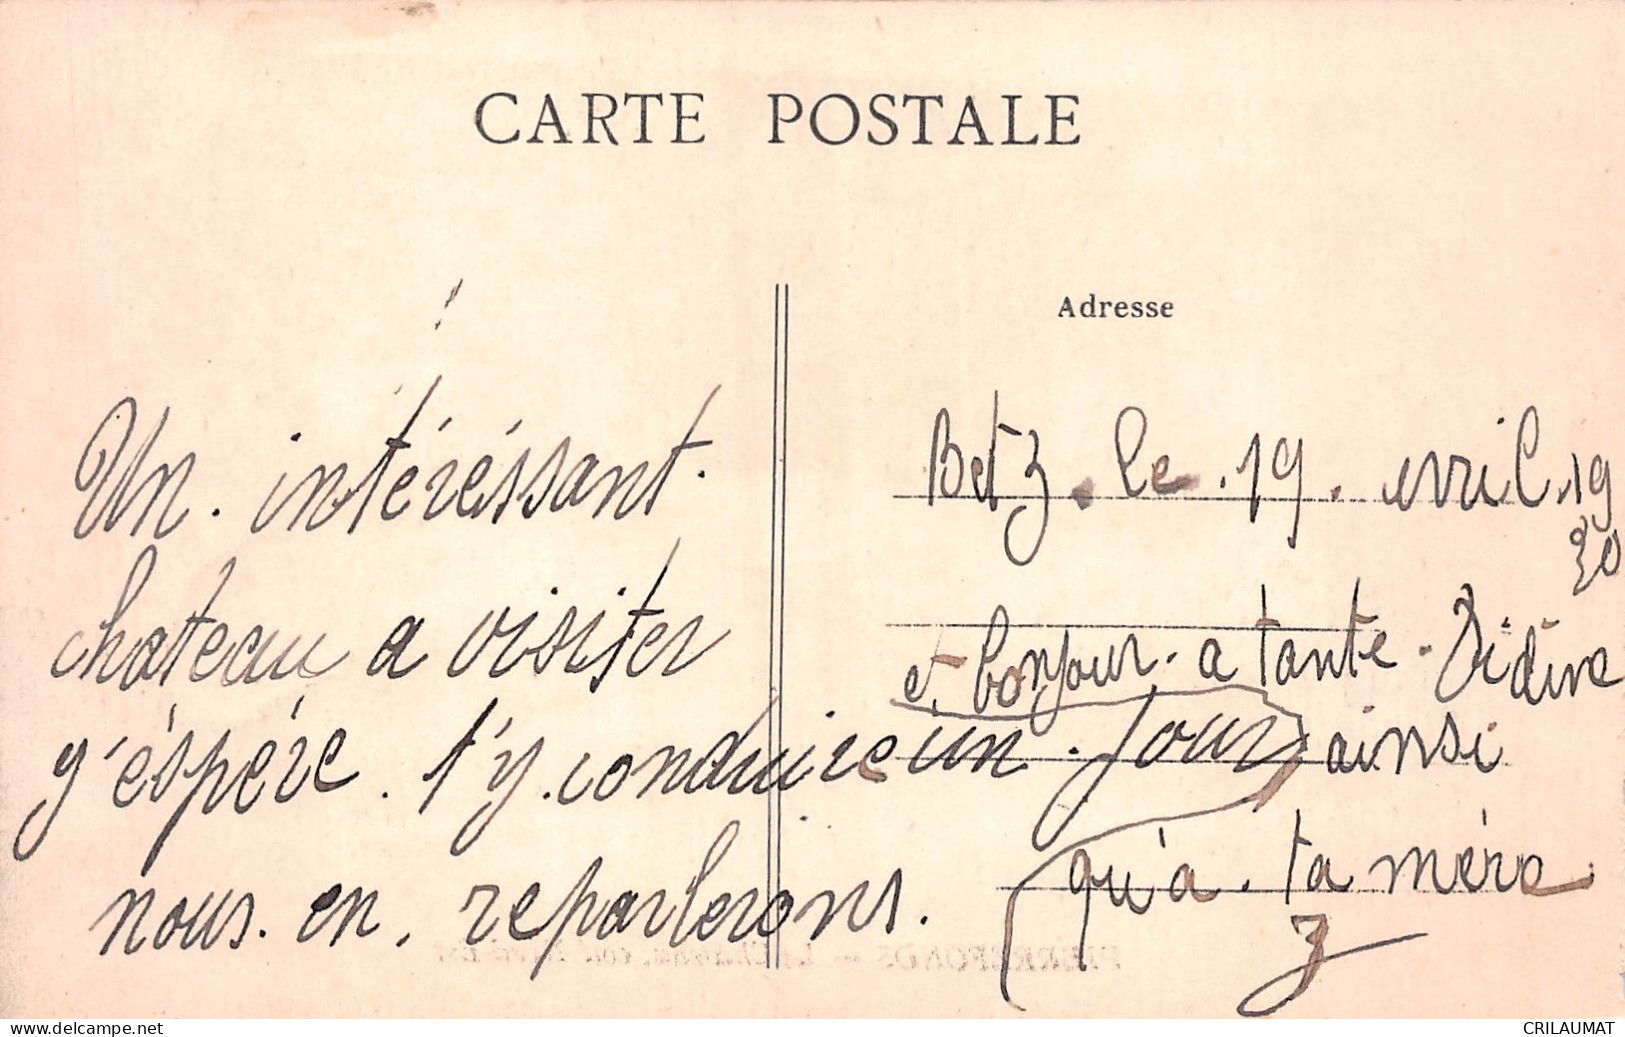 CARTE POSTALE
Adresse
Un. intéréssant.
chateau a visiter
y'éspére. t'y. conduire un. jour
nous. en. reparlerons.
Betz. Le. 19. avril. 19
20
et. bonjour. a tante. Didine
ainsi
qu'a. ta mére
PIERREFONDS
www.delcampe.net
CRILAUMAT